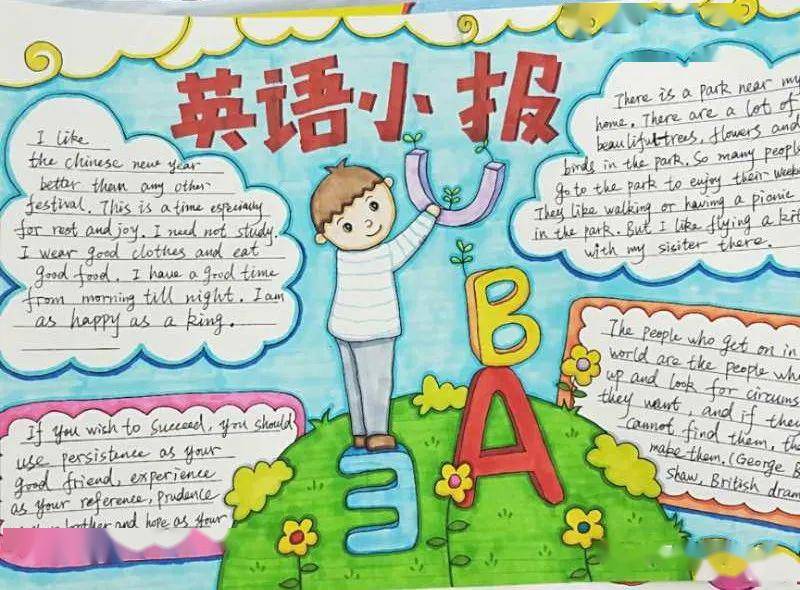 英语小报
I like
the chinese new year
better than any other
festival. This is a time especially
for rest and joy. I need not study.
I wear good clothes and eat
good food. I have a good time
from morning till night. I am
as happy as a king.
There is a park near my
home. There are a lot of
beautiful trees, flowers and
birds in the park. So many people
go to the park to enjoy their
They like walking or having a picnic
in the park. But I like flying a
with my sisiter there.
If you wish to succeed, you should
use persistence as your
good friend, experience
as your reference, prudence
brother and hope as your
The people who get on in
world are the people who
up and look for
they want, and if they
cannot find them,
make them. (George B
Shaw, British
U
B
A
E